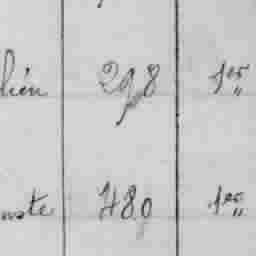 lien 298 1er "
uste 480 1er "